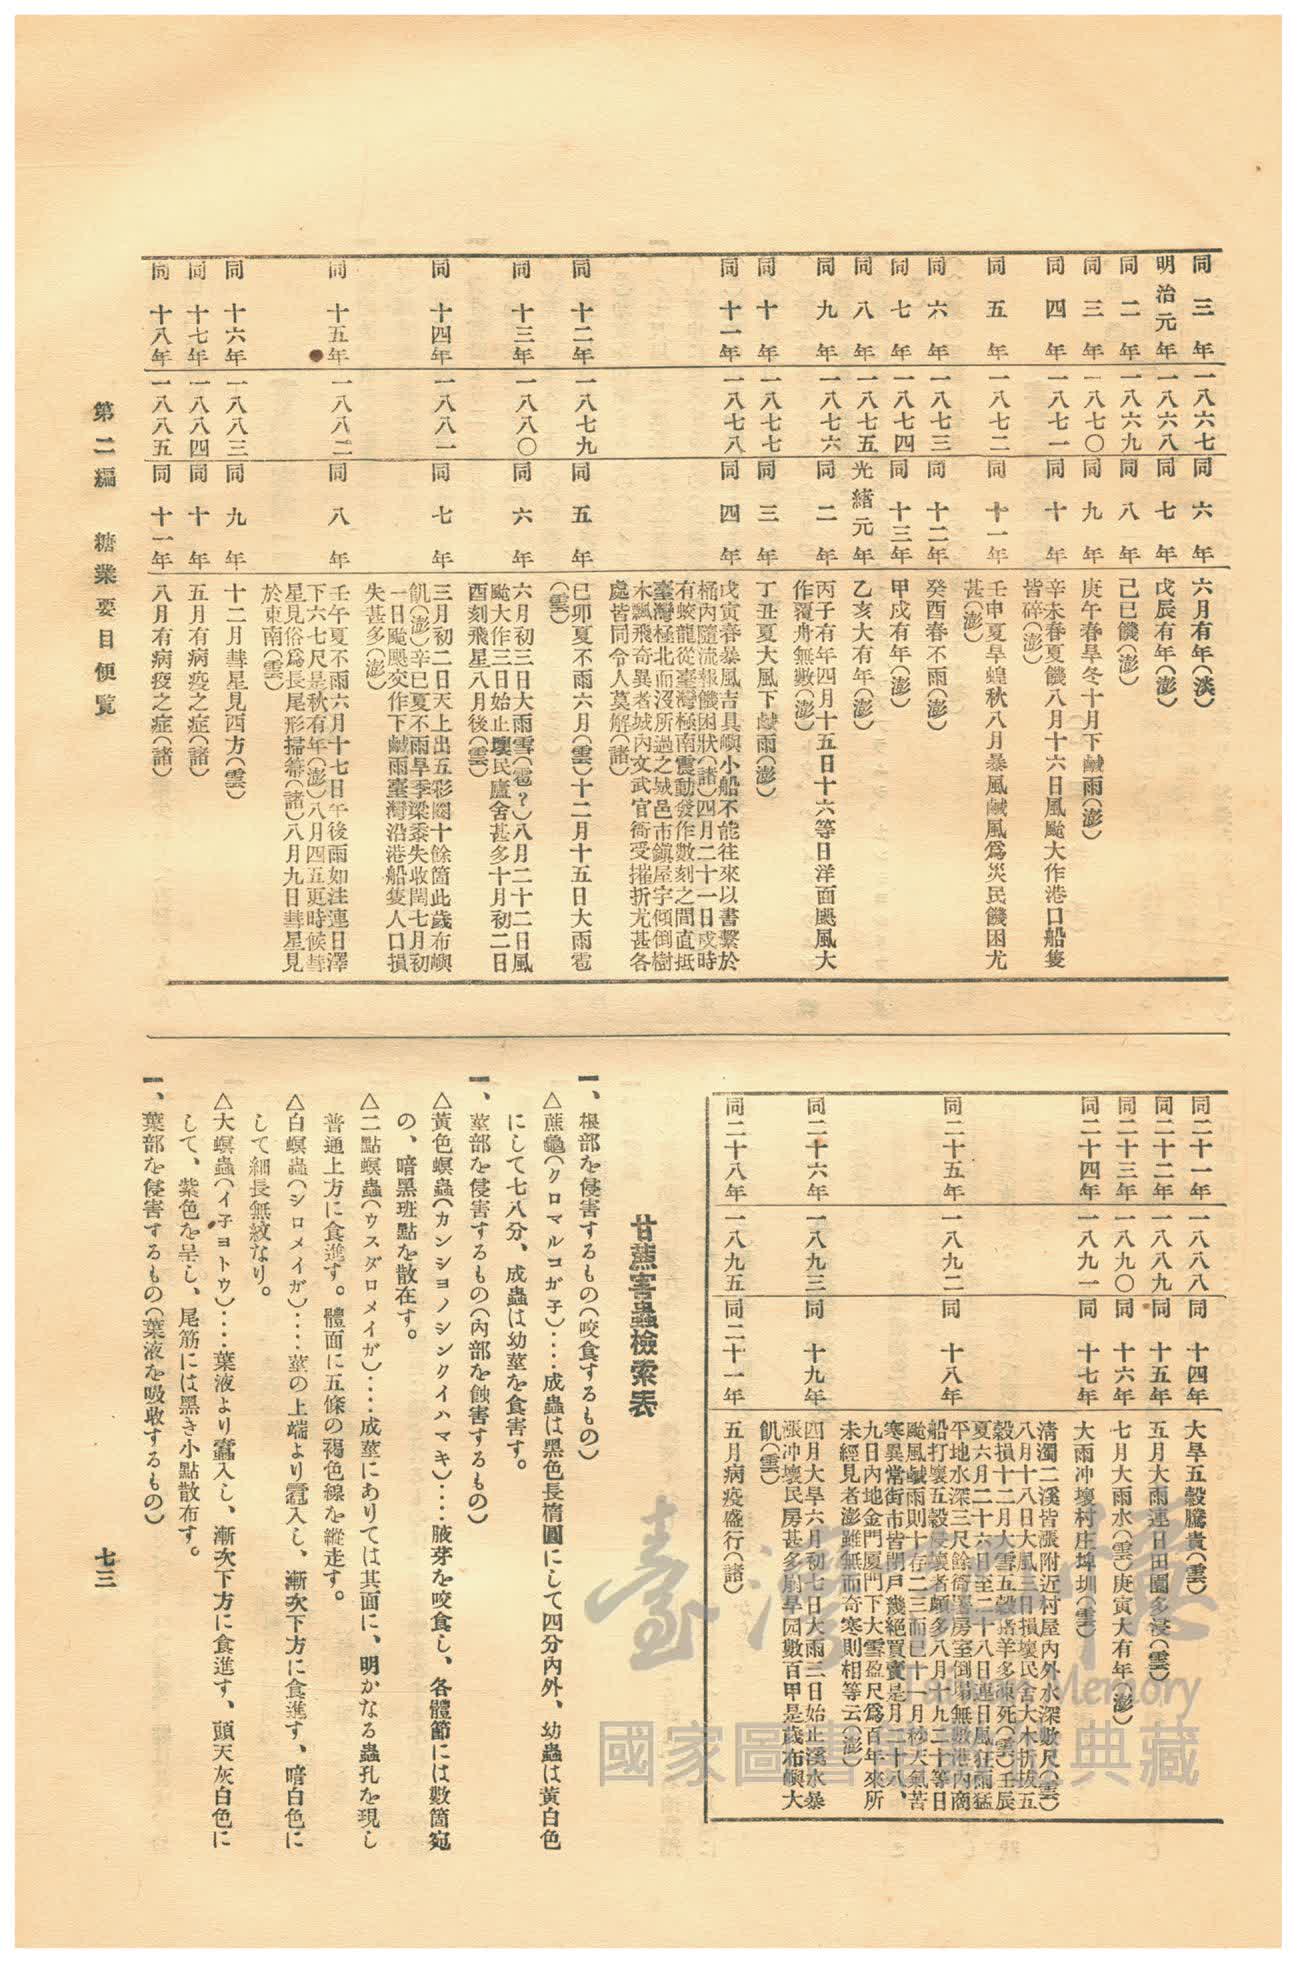 同 三 年 一八六七 同 六 年 六月有年(淡)
明治元年 一八六八 同 七 年 戊辰有年(澎)
同 二 年 一八六九 同 八 年 己巳饑(澎)
同 三 年 一八七〇 同 九 年 庚午春旱冬十月下鹹雨(澎)
同 四 年 一八七一 同 十 年 辛未春夏饑八月十六日風颱大作港口船隻
皆碎(澎)
同 五 年 一八七二 同 十一年 壬申夏旱蝗秋八月暴風鹹風爲災民饑困尤
甚(澎)
同 六 年 一八七三 同 十二年 癸酉春不雨(澎)
同 七 年 一八七四 同 十三年 甲戌有年(澎)
同 八 年 一八七五 光緒元年 乙亥大有年(澎)
同 九 年 一八七六 同 二 年 丙子有年四月十五日十六等日洋面颶風大
作覆舟無數(澎)
同 十 年 一八七七 同 三 年 丁丑夏大風下鹹雨(澎)
同 十一年 一八七八 同 四 年 戊寅春暴風吉具嶼小船不能往來以書繫於
桶內隨流報饑困狀(諸)四月二十一日戌時
有蛟龍從臺灣極南震動發作數刻之間直抵
臺灣極北而沒所過之城邑市鎭屋宇傾倒樹
木飄飛奇異者城內文武官衙受摧折尤甚各
處皆同令人莫解(諸)
同 十二年 一八七九 同 五 年 己卯夏不雨六月(雲)十二月十五日大雨雹
(雲)
同 十三年 一八八〇 同 六 年 六月初三日大雨雪(雹?)八月二十二日風
颱大作三日始止壞民廬舍甚多十月初二日
酉刻飛星八月後(雲)
同 十四年 一八八一 同 七 年 三月初二日天上出五彩閎十餘箇此歲布嶼
飢(澎)辛巳夏不雨旱季梁黍失收閏七月初
一日颱颶交作下鹹雨臺灣沿港船隻人口損
失甚多(澎)
同 十五年 一八八二 同 八 年 壬午夏不雨六月十七日午後雨如注連日澤
下六七尺是秋有年(澎)八月四五更時候彗
星見俗爲長尾形掃箒(諸)八月九日彗星見
於東南(雲)
同 十六年 一八八三 同 九 年 十二月彗星見西方(雲)
同 十七年 一八八四 同 十 年 五月有病疫之症(諸)
同 十八年 一八八五 同 十一年 八月有病疫之症(諸)
第二編 糖業要目便覧
同二十一年 一八八八 同 十四年 大旱五穀騰貴(雲)
同二十二年 一八八九 同 十五年 五月大雨連日田園多浸(雲)
同二十三年 一八九〇 同 十六年 七月大雨水(雲)庚寅大有年(澎)
同二十四年 一八九一 同 十七年 大雨冲壞村庄埤圳(雲)
同二十五年 一八九二 同 十八年 淸濁二溪皆漲附近村屋內外水深數尺(雲)
八月十八日大風三日損壞民舍大木折拔五
穀損十二月大雪五穀 羊多凍死(雲)壬辰
夏六月二十六日至二十八日連日風狂雨猛
平地水深三尺餘衙署房室倒塌無數港內商
船打壞五穀浸壞者頗多八月十九二十等日
颱風鹹雨則十存二三而已十一月杪天氣苦
寒異常街市皆閉戶幾絕買賣是月二十八、
九日內地金門厦門下大雪盈尺爲百年來所
未經見者澎雖無而奇寒則相等云(澎)
同二十六年 一八九三 同 十九年 四月大旱六月初七日大雨三日始止溪水暴
漲冲壞民房甚多崩旱园數百甲是歲布嶼大
飢(雲)
同二十八年 一八九五 同二十一年 五月病疫盛行(諸)
甘蔗害蟲檢索表
一、根部を侵害するもの(咬食するもの)
△蔗龜(クロマルコガ子)‥‥成蟲は黑色長楕圓にして四分內外、幼蟲は黄白色
にして七八分、成蟲は幼莖を食害す。
一、莖部を侵害するもの(內部を蝕害するもの)
△黃色螟蟲(カンシヨノシンクイハマキ)‥‥腋芽を咬食し、各體節には數箇宛
の、暗黑班點を散在す。
△二點螟蟲(ウスダロメイガ)‥‥成莖にありては其面に、明かなる蟲孔を現し
普通上方に食進す。體面に五條の褐色線を縱走す。
△白螟蟲(シロメイガ)‥‥莖の上端より蠧入し、漸次下方に食進す、暗白色に
して細長無紋なり。
△大螟蟲(イ子ヨトウ)‥‥葉液より蠧入し、漸次下方に食進す、頭天灰白色に
して、紫色を呈し、尾筋には黑き小點散布す。
一、葉部を侵害するもの(葉液を吸收するもの)
七三
臺灣記憶
Taiwan Memory
國家圖書館 典藏